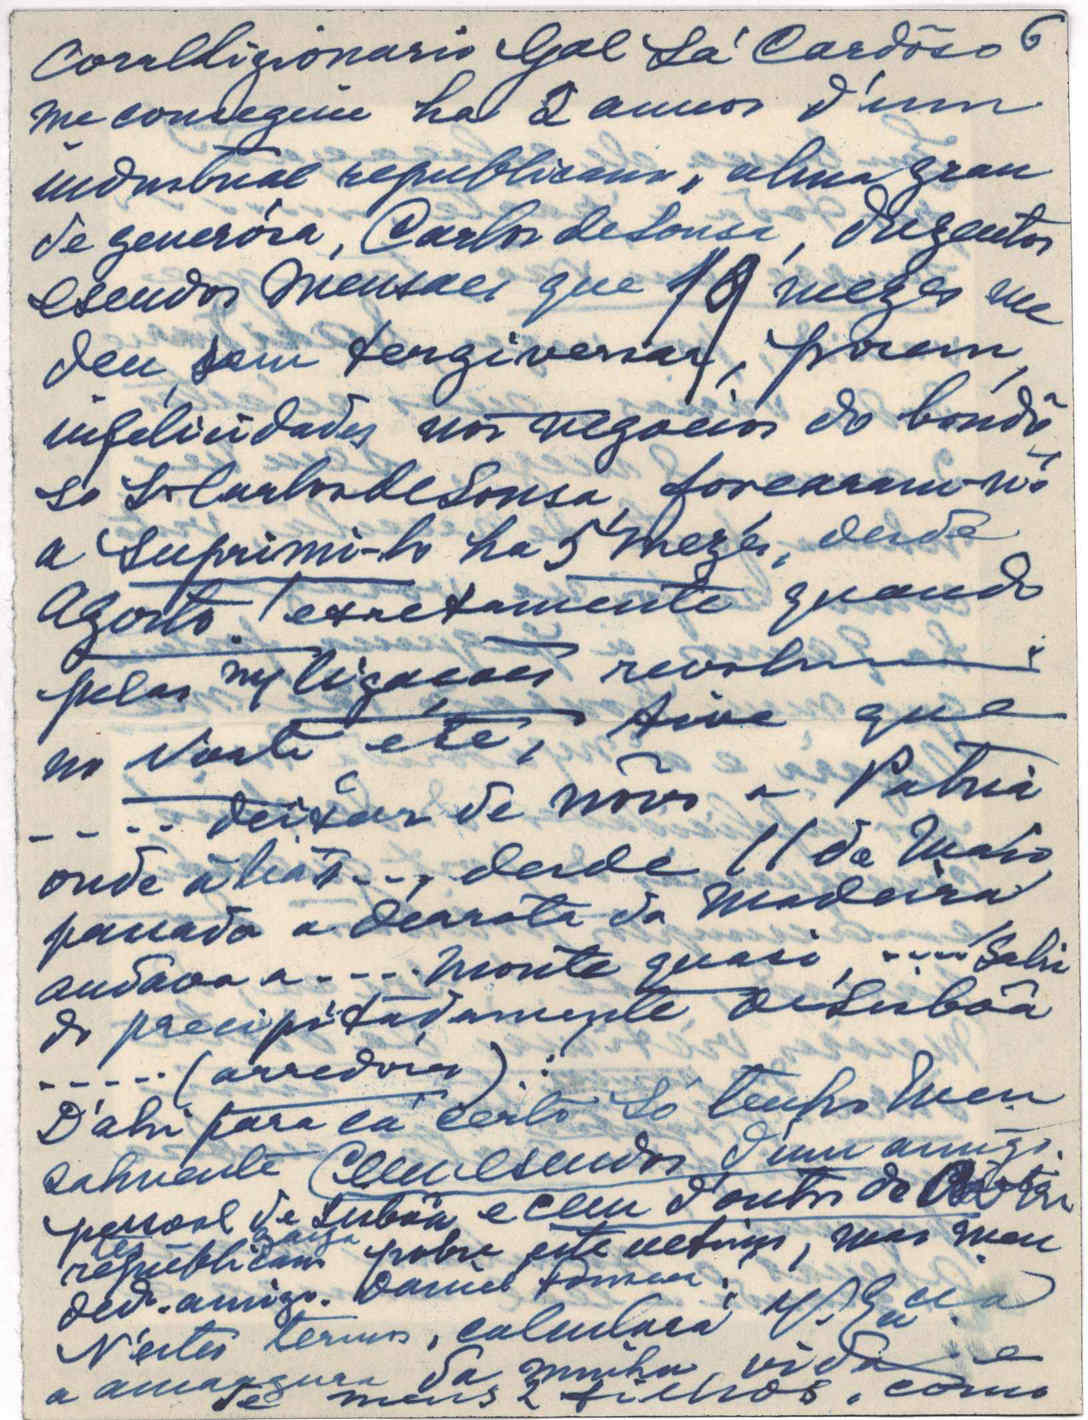 Corrilligionario Gal Sá Cardôso 6
me conseguiu ha 2 annos d'um
industrial republicano, alma gran
de generósa, Carlos de Sousa, duzentos
escudos mensaes que 19 mezes me
deu, sem tergiversar, porem,
infelicidades nos negocios do bondô
so Sr. Carlos de Sousa, forcaram-nó
a suprimi-lo ha 5 mezes, desde
Agosto! exactamente quando
pelas ligacões
no Norte etc, tive que
---- deixar de nôvo a Patria
onde aliás ---, desde 11 de Maio,
passada a dearóta da Madeira
andava a ---- monte quasi, ---- Sahi
do precipitadamente de Lisbôa
----- (arredóres)..
D'ahi para cá certo só tenho men
salmente Cem escudos d'um amigo.
pessoal de Lisbôa e cem d'outro do
republicano pobre, este ultimo, mas meu
ded. amigo. Daniel
N'estes termos, calculará V. Excia.
a amargura da minha vida e
de meus 2 filhos, como